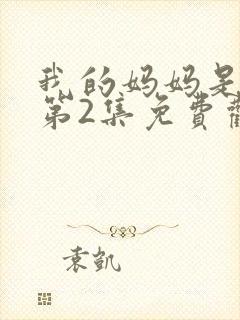 我的妈妈是
第2集免費
袁凯